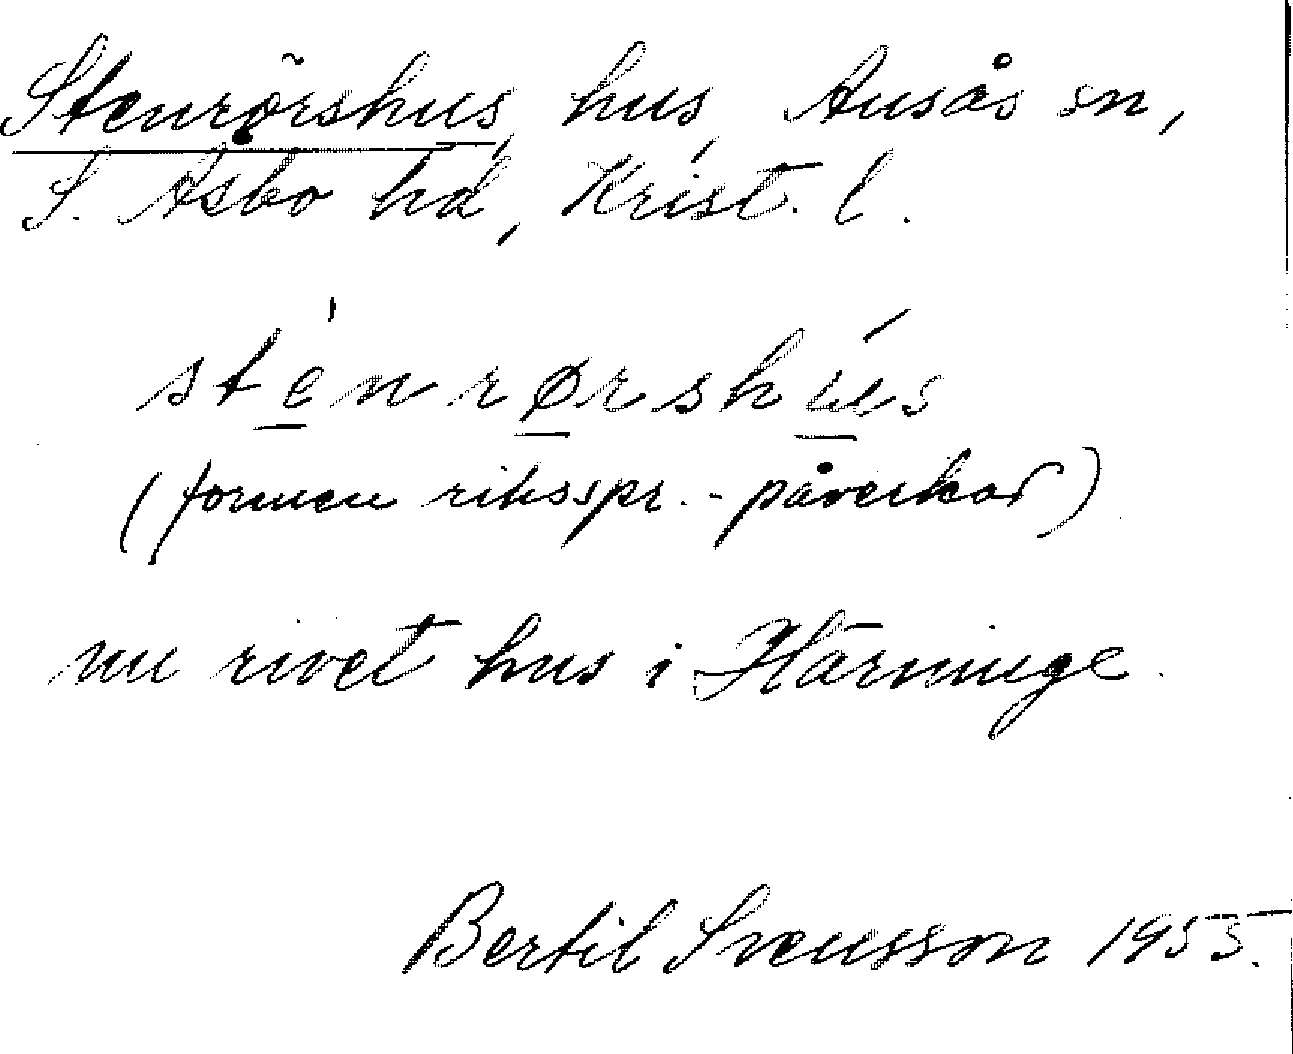 Stenrörshus, hus, Ausås sn,
S. Åsbo hd, Krist. l.
ste̱nrø̱rshu̱s
(formen riksspr.-påverkad)
nu rivet hus i Härninge.
Bertil Svensson 1955.